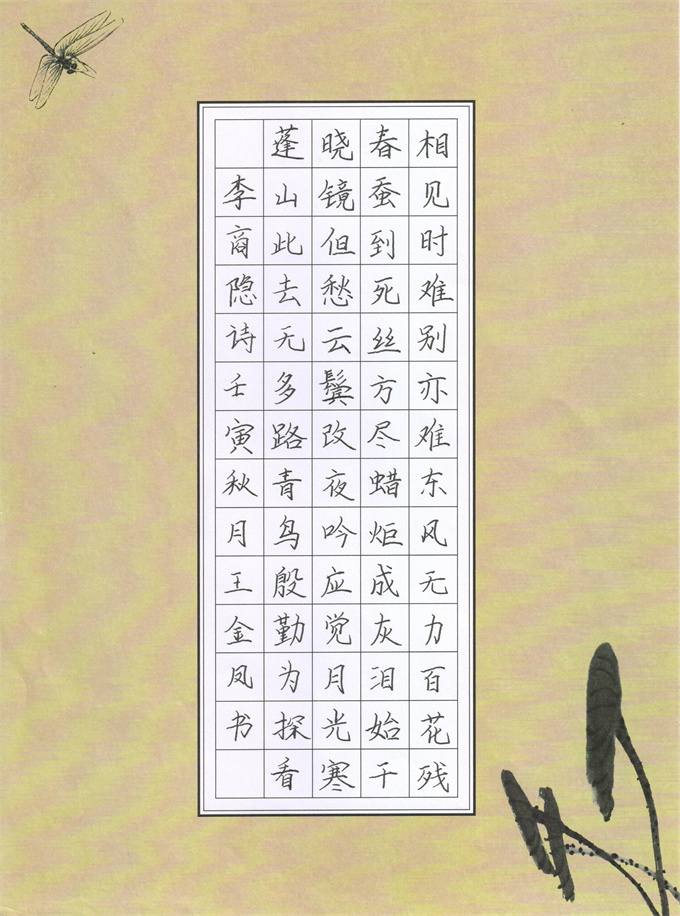 相见时难别亦难东风无力百花残
春蚕到死丝方尽蜡炬成灰泪始干
晓镜但愁云鬓改夜吟应觉月光寒
蓬山此去无多路青鸟殷勤为探看
李商隐诗壬寅秋月王金凤书